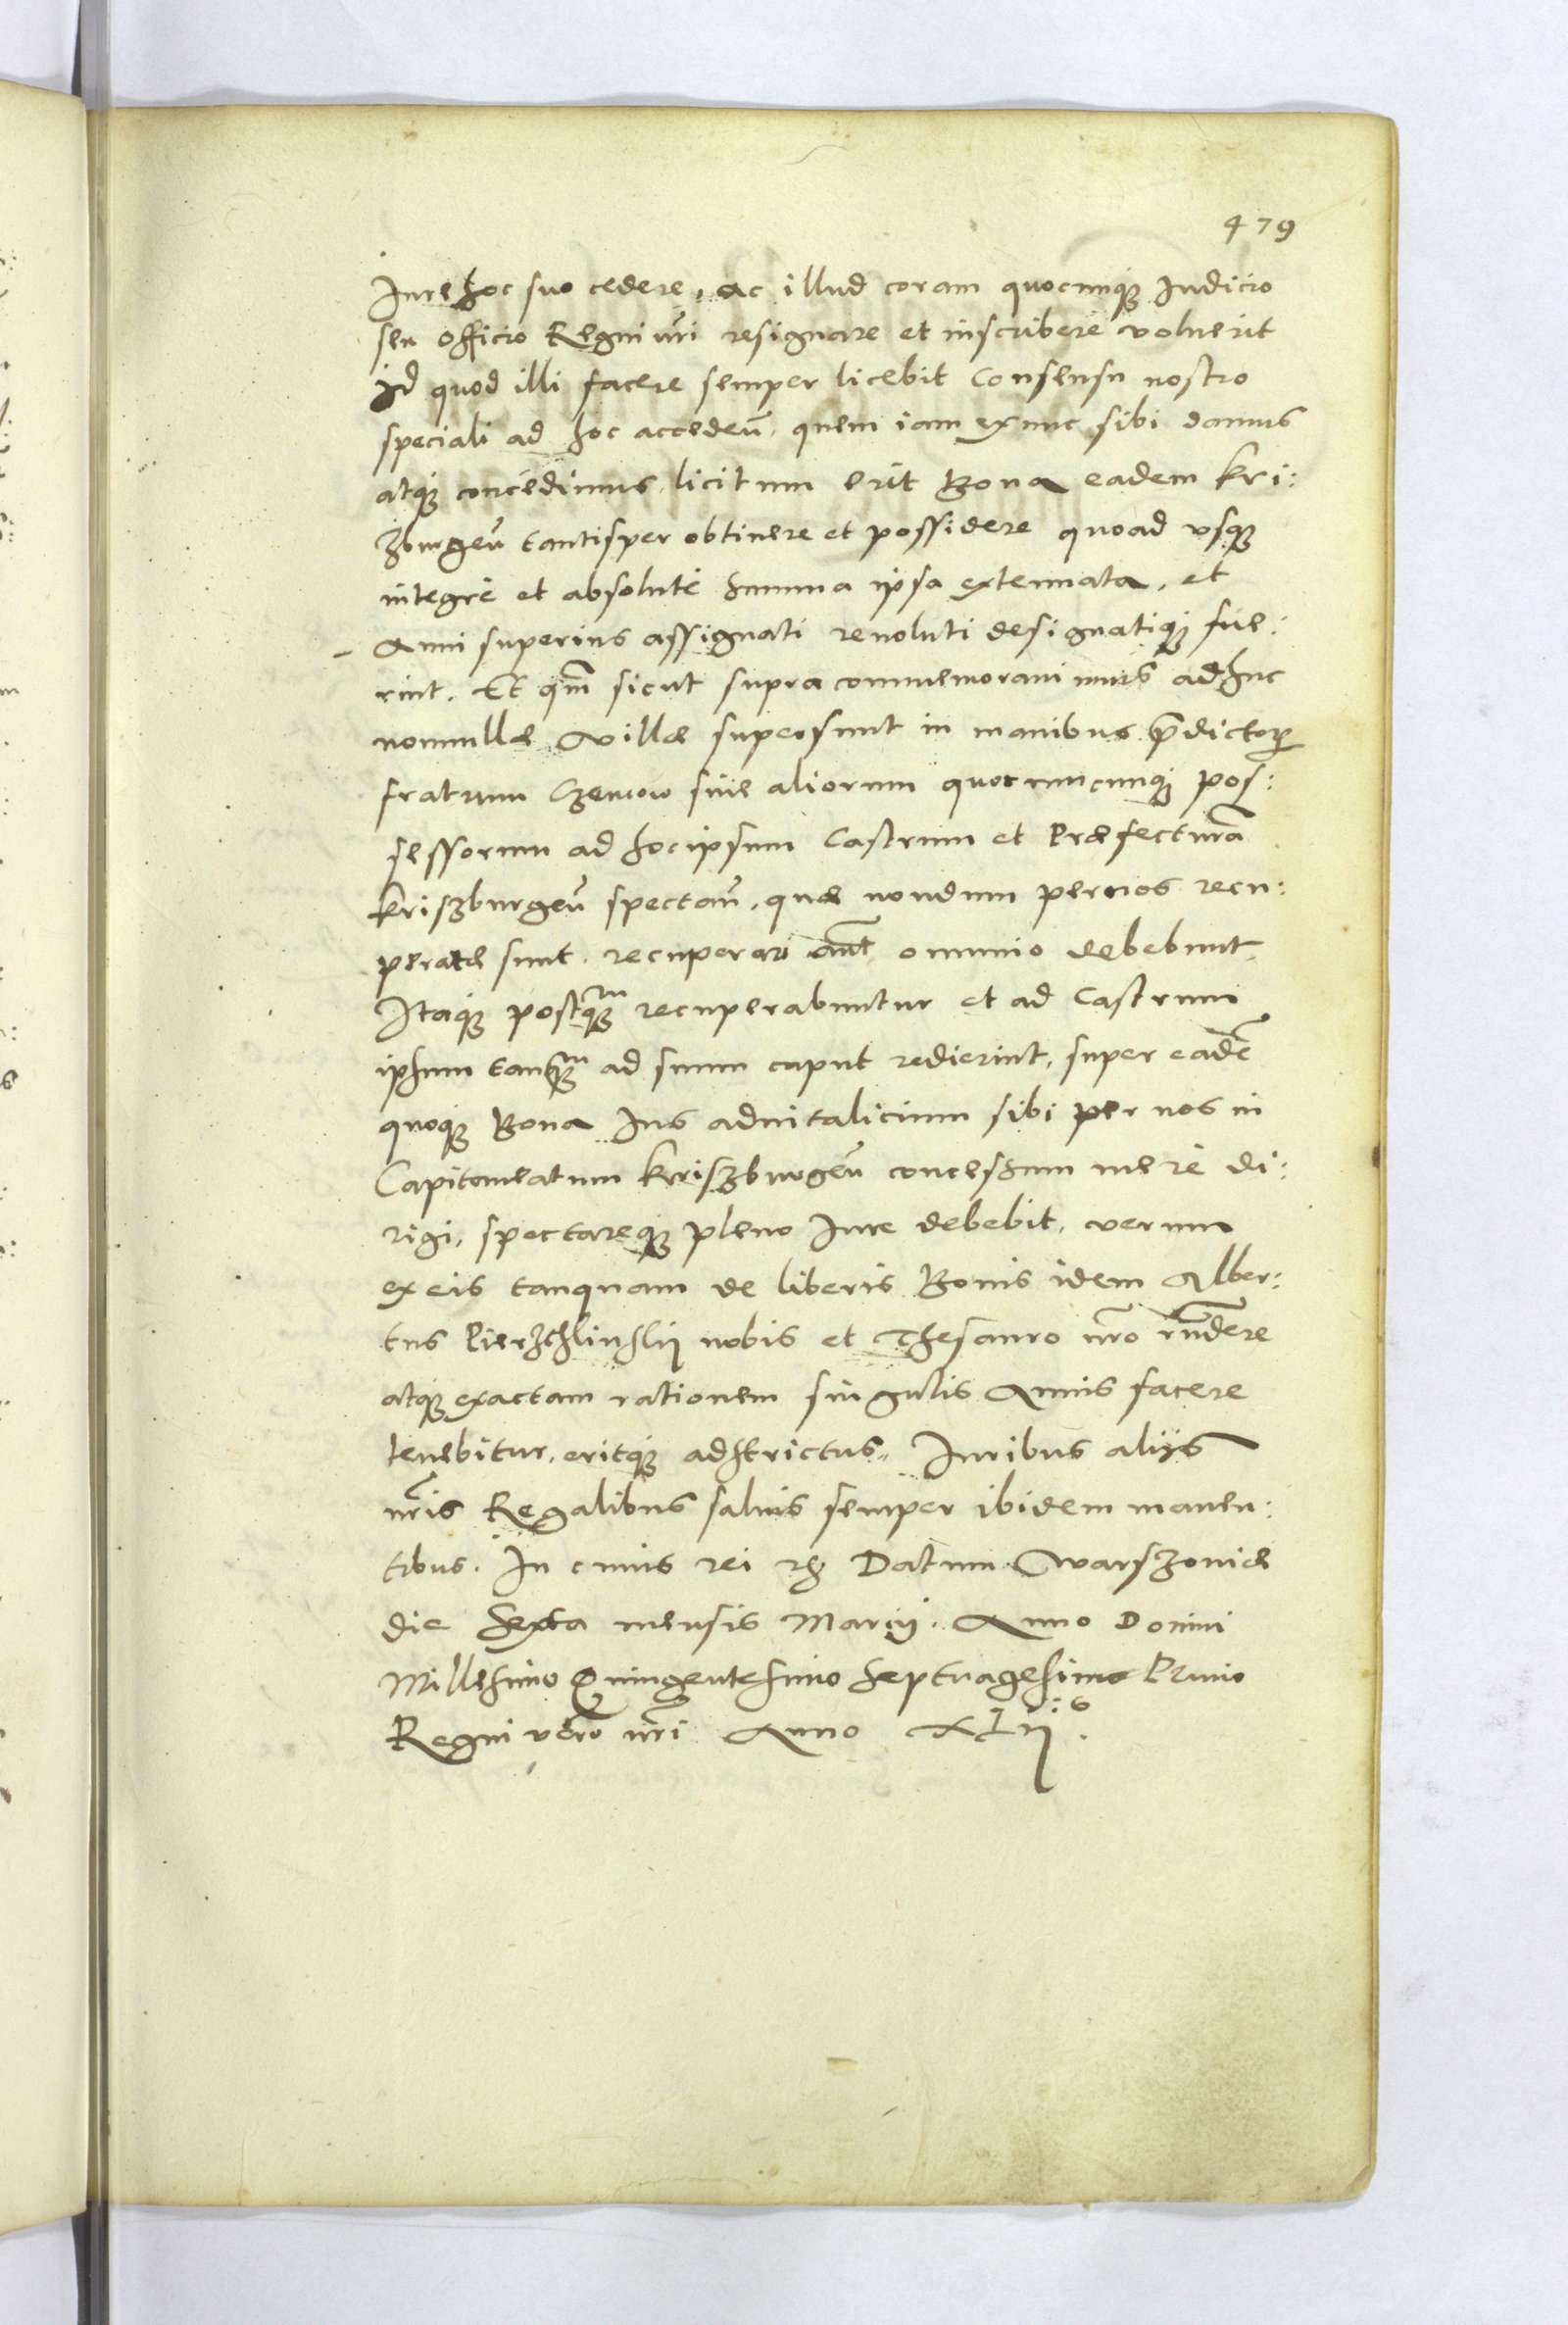 479
Iure hoc suo cedere, ac illud coram quocunq; Iudicio
seu officio Regni nr̃i resignare et inscribere voluerit
id quod illi facere semper licebit Consensu nostro
speciali ad hoc acceden̄. quem iam exnunc sibi damus
atq; concedimus, licitum erit Bona eadem Kri:
zburgen̄ tantisper obtinere et possidere quoad usq;
integre et absolute summa ipsa extenuata, et
Anni superius assignati reuoluti designatiq; fue:
rint. Et qm̃ sicut supra commemorauimus adhuc
nonnullæ Villæ supersunt in manibus p̃dictor̃
fratrum siue aliorum quorumcunq; pos:
sessorum ad hoc ipsum Castrum et Præfecturã
Kriszburgen̄ spectan̄. quæ nondum per nos recu:
peratæ sunt. recuperari aũt omnino debebunt
Itaq; postq̃m recuperabuntur et ad Castrum
ipsum tanq̃m ad suum caput redierint, super eadẽ
quoq; Bona Ius aduitalicium sibi per nos in
Capitaneatum Kriszburgen̄ concessum mere di:
rigi, spectareq; pleno Iure debebit, verum
ex eis tanquam de liberis Bonis idem Alber:
tus Pierzchlinskij nobis et Thesauro nr̃o rñdere
atq; exactam rationem singulis Annis facere
tenebitur, eritq; adstrictus. Iuribus alijs
nr̃is Regalibus saluis semper ibidem manen:
tibus. In cuius rei rẽ Datum Warszouiæ
die Sexta mensis Marcij. Anno Domini
Millesimo Quingentesimo Septuagesimo Primo
Regni vero nr̃i Anno